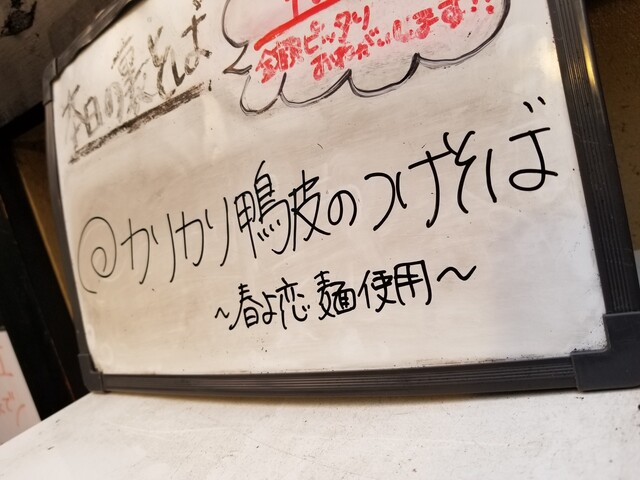 本日の裏そば
金額ピッタリ
おねがいします!!
@カリカリ鴨皮のつけそば
~春よ恋 麺使用~